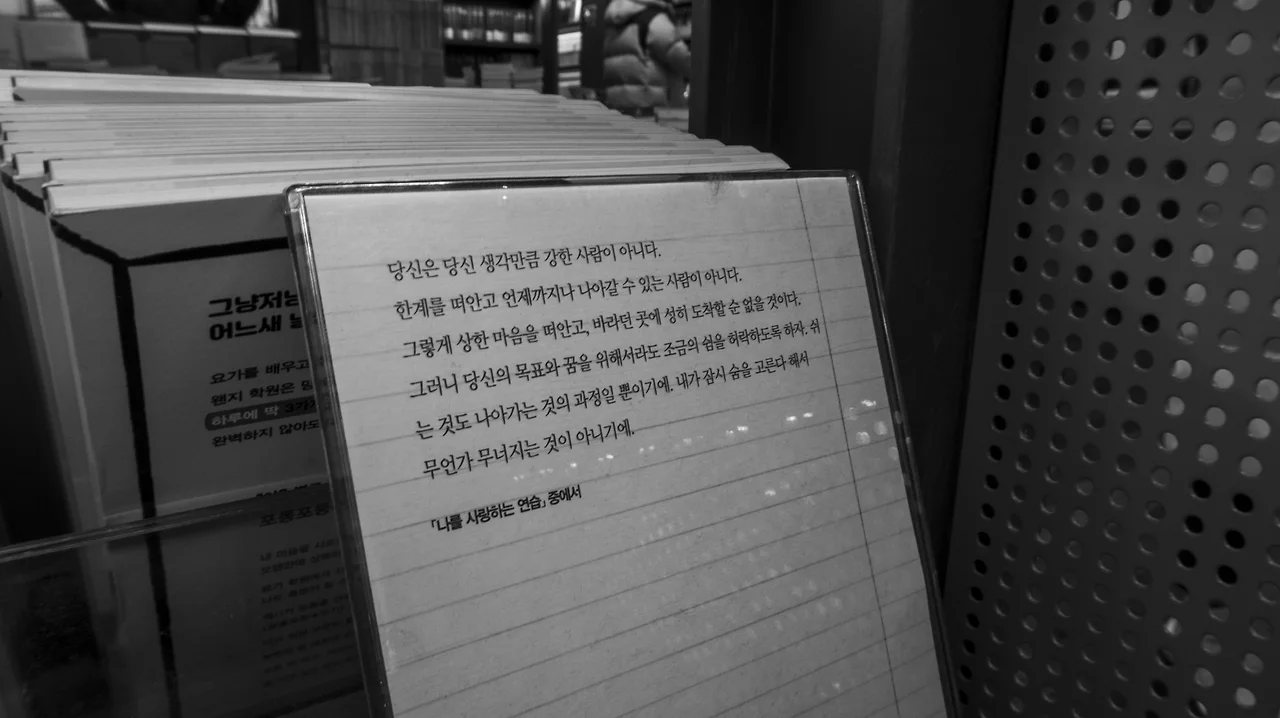 당신은 당신 생각만큼 강한 사람이 아니다.
한계를 떠안고 언제까지나 나아갈 수 있는 사람이 아니다.
그렇게 상한 마음을 떠안고, 바라던 곳에 성히 도착할 순 없을 것이다.
그러니 당신의 목표와 꿈을 위해서라도 조금의 쉼을 허락하도록 하자. 쉬
는 것도 나아가는 것의 과정일 뿐이기에. 내가 잠시 숨을 고른다 해서
무언가 무너지는 것이 아니기에.
「나를 사랑하는 연습」 중에서
그냥저냥
어느새
요가를 배우고
왠지 학원은
하루에 딱 3가
완벽하지 않아도
포동포동